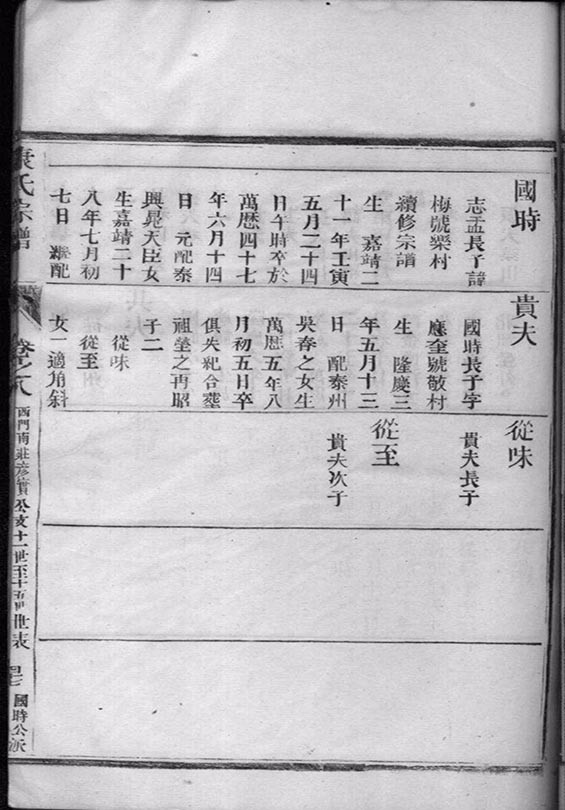 國時
志孟長子諱
梅號樂村
續修宗譜
生 嘉靖二
十一年壬寅
五月二十四
日午時卒於
萬歷四十七
年六月十四
日 元配秦
興晁天臣女
生嘉靖二十
八年七月初
七日 繼配
貴夫
國時長子字
應奎號敬村
生 隆慶三
年五月十三
日 配秦州
吳春之女生
萬歷五年八
月初五日卒
俱失紀合塟
祖塋之丙昭
子二
從味
從至
女一適角斜
從味
貴夫長子
從至
貴夫次子
氏宗譜
卷之八
西門南莊彦實公支十一世至十五世世表
國時公派